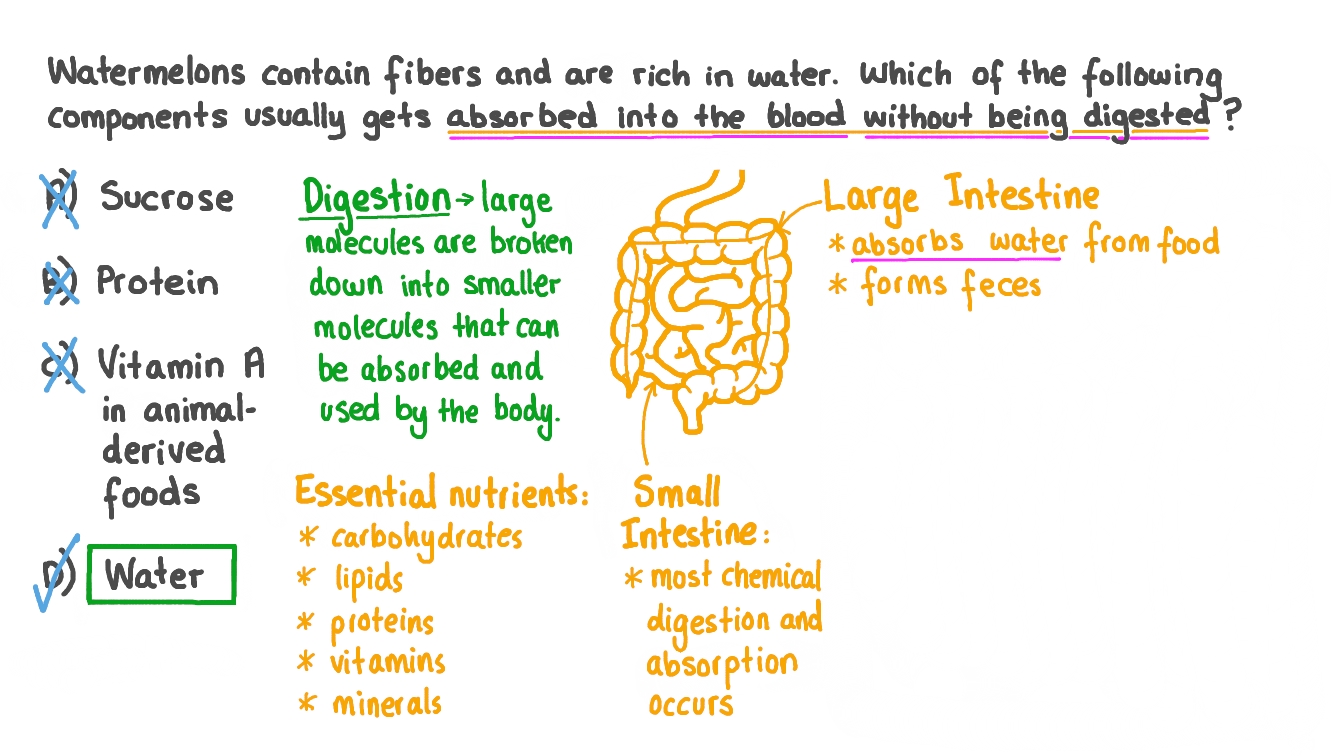 Watermelons contain fibers and are rich in water. Which of the following
components usually gets absorbed into the blood without being digested?
A) Sucrose
B) Protein
C) Vitamin A
in animal-
derived
foods
D) Water
Digestion → large
molecules are broken
down into smaller
molecules that can
be absorbed and
used by the body.
Essential nutrients:
* carbohydrates
* lipids
* proteins
* vitamins
* minerals
Large Intestine
* absorbs water from food
* forms feces
Small
Intestine:
* most chemical
digestion and
absorption
occurs